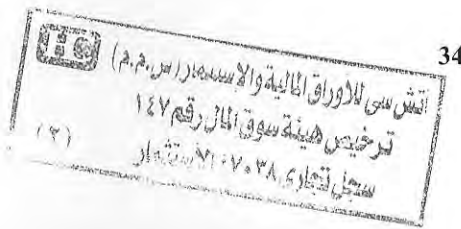 34
HC
اتش سى للاوراق المالية والاستثمار (ش.م.م)
ترخيص هيئة سوق المال رقم ١٤٧
(٣)
سجل تجارى الاستثمار